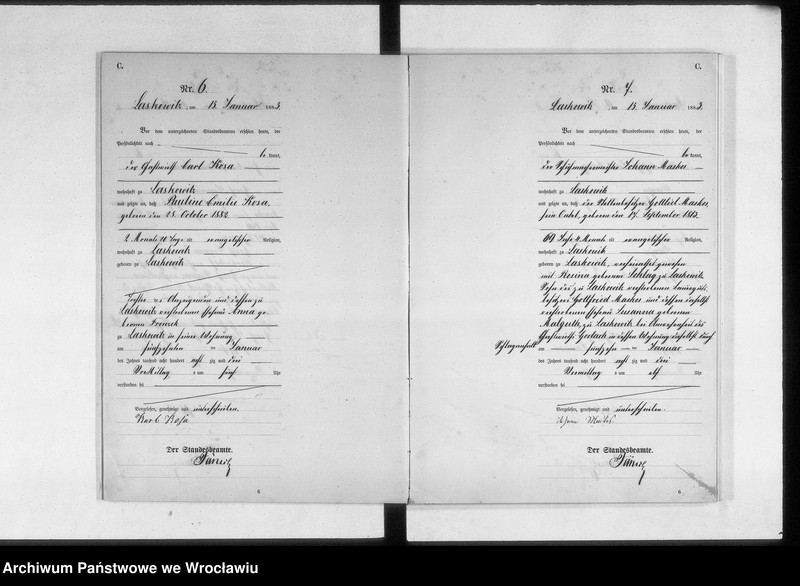 C.
Nr. 6.
Laskowitz, am 15. Januar 1883.
Vor dem unterzeichneten Standesbeamten erschien heute, der
Persönlichkeit nach
be kannt,
der Gastwirth Carl Kosa
wohnhaft zu Laskowitz
und zeigte an, daß Pauline Emilie Kosa,
geboren den 28. October 1882
2 Monate Tage alt evangelischer Religion,
wohnhaft zu Laskowitz
geboren zu Laskowitz
Tochter des Anzeigenden und dessen zu
Laskowitz verstorbenen Ehefrau Anna ge-
borenen
zu Laskowitz in seiner Wohnung
am fünfzehnten Januar
des Jahres tausend acht hundert acht zig und drei
Vormittag s um fünf Uhr
verstorben sei
Vorgelesen, genehmigt und unterschrieben.
Karl Kosa
Der Standesbeamte.
6
C.
Nr. 7.
Laskowitz, am 15. Januar 1883.
Vor dem unterzeichneten Standesbeamten erschien heute, der
Persönlichkeit nach
be kannt,
der Schuhmachermeister Johann
wohnhaft zu Laskowitz
und zeigte an, daß der Stellenbesitzer Gottlieb
sein Onkel, geboren den 17. September 1813
69 Jahre 4 Monate alt evangelischer Religion,
wohnhaft zu Laskowitz
geboren zu Laskowitz, verheirathet gewesen
mit Rosina geborenen Schlag zu Laskowitz
Sohn des zu Laskowitz verstorbenen
besitzers Gottfried und dessen daselbst
verstorbenen Ehefrau Susanna geborenen
zu Laskowitz bei Anwesenheit des
Gastwirth Gerlach in dessen Wohnung daselbst durch
Schlaganfall
am fünfzehn ten Januar
des Jahres tausend acht hundert acht zig und drei
Vormittag s um elf Uhr
verstorben sei
Vorgelesen, genehmigt und unterschrieben.
Johann
Der Standesbeamte.
6
Archiwum Państwowe we Wrocławiu